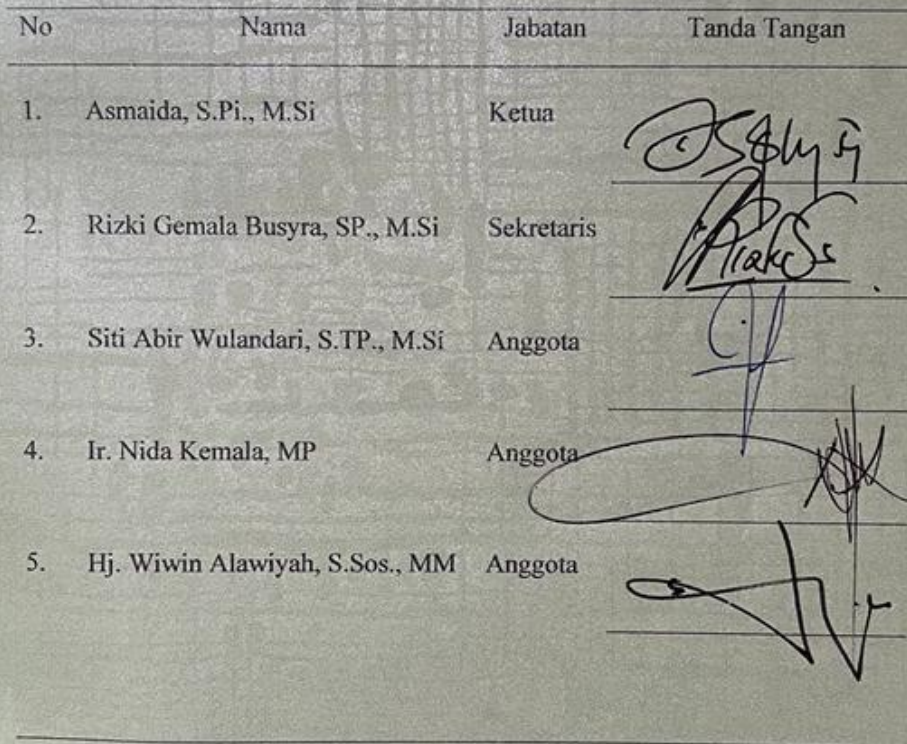 No Nama Jabatan Tanda Tangan
1. Asmaida, S.Pi., M.Si Ketua
2. Rizki Gemala Busyra, SP., M.Si Sekretaris
3. Siti Abir Wulandari, S.TP., M.Si Anggota
4. Ir. Nida Kemala, MP Anggota
5. Hj. Wiwin Alawiyah, S.Sos., MM Anggota